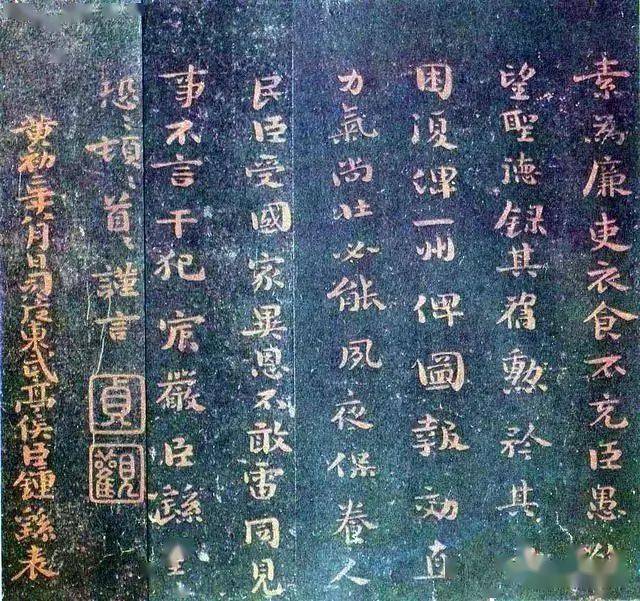 素為廉吏衣食不充臣愚
望聖德録其舊勲矜其
困復俾一州俾圖報効直
力氣尚壯必能夙夜保養人
民臣受國家異恩不敢雷同見
事不言干犯宸嚴臣繇
恐〻頓〻首〻謹言
貞觀
黃初二年八月日司徒東武亭侯臣鍾繇表